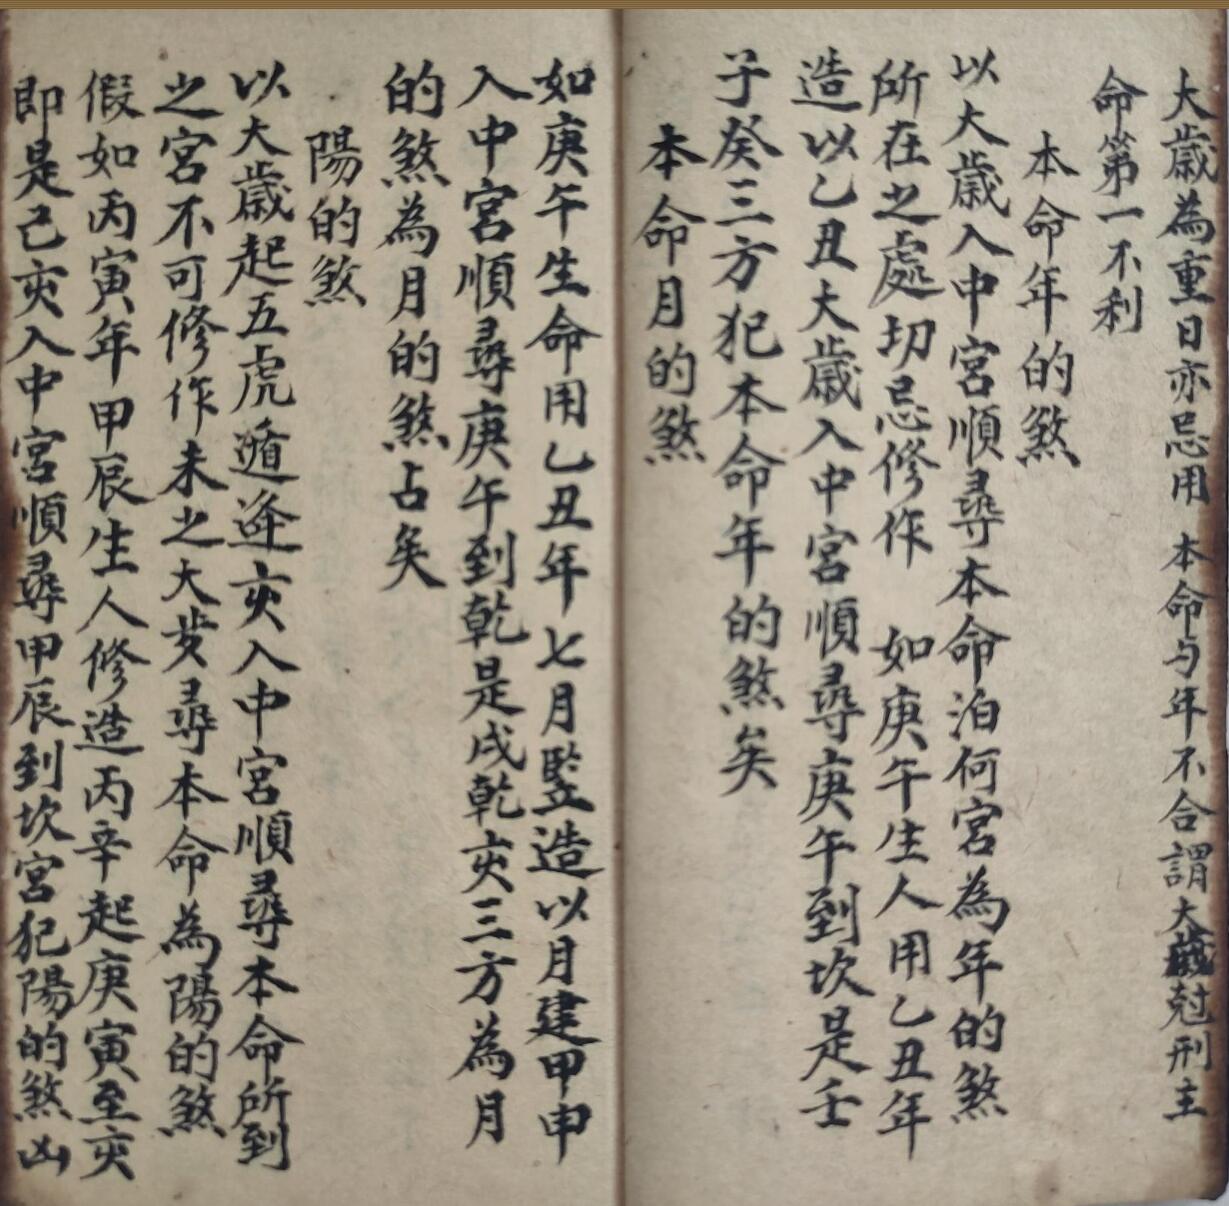 大歲為重日亦忌用 本命与年不合謂大歲尅刑主
命第一不利
本命年的煞
以大歲入中宮順尋本命泊何宮為年的煞
所在之處切忌修作 如庚午生人用乙丑年
造以乙丑大歲入中宮順尋庚午到坎是壬
子癸三方犯本命年的煞矣
本命月的煞
如庚午生命用乙丑年七月竪造以月建甲申
入中宮順尋庚午到乾是戌乾亥三方為月
的煞為月的煞占矣
陽的煞
以大歲起五虎遁逢亥入中宮順尋本命所到
之宮不可修作未之大歲尋本命為陽的煞
假如丙寅年甲辰生人修造丙辛起庚寅至亥
即是己亥入中宮順尋甲辰到坎宮犯陽的煞凶